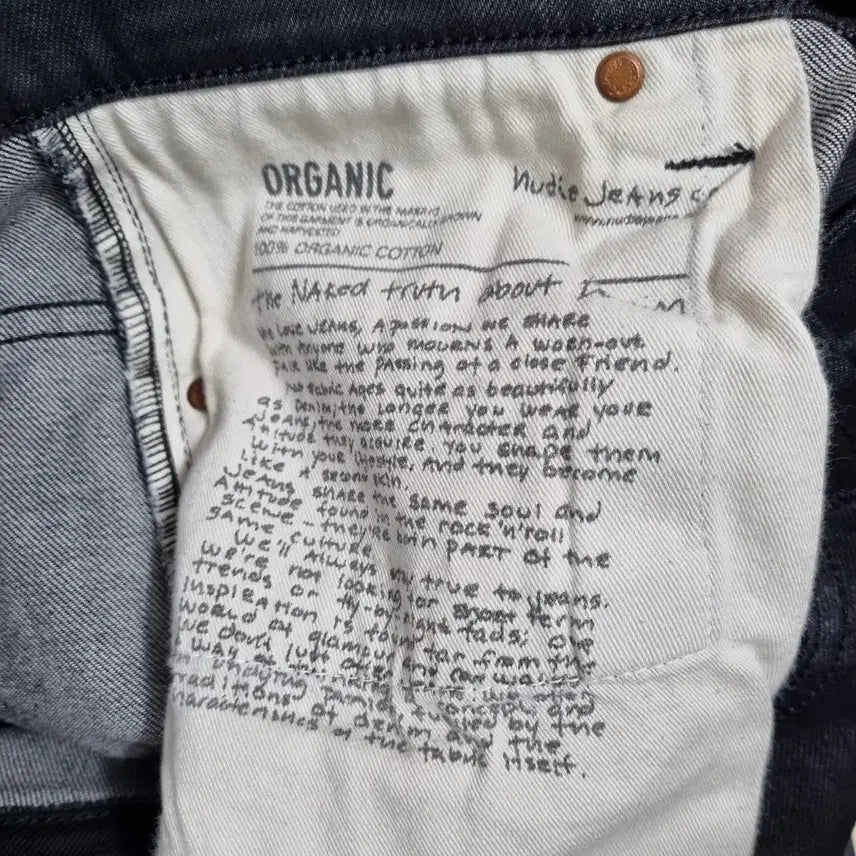 ORGANIC
THE COTTON USED IN THE MAKING
OF THIS GARMENT IS ORGANICALLY GROWN
AND HARVESTED
100% ORGANIC COTTON
Nudie Jeans co
www.nudiejeans
the NAked truth about
We Love JEANS, A passion we share
with Anyone who mourns A worn-out
pair like the passing of a close friend.
No fabric Ages quite as beautifully
as Denim; the longer you wear your
Jeans, the more character and
Attitude they acquire. You shape them
with your lifestyle, and they become
like A second skin.
Jeans share the same soul and
Attitude found in the rock 'n' roll
scene - they're both part of the
same culture
We'll Always stay true to Jeans.
We're not looking for short term
trends or fly-by-night fads; our
Inspiration is found far from the
world of glamour
We don't just
way
undying passion and
traditions of denim and the
characteristics of the fabric itself.